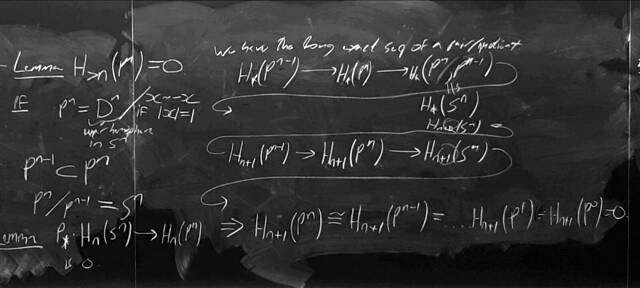 Lemma H_{>n}(P^n)=0
IF P^n = D^n / x~-x if |x|=1
upper hemisphere in S^n
P^{n-1} ⊂ P^n
P^n/P^{n-1} = S^n
Lemma P_*: H_n(S^n) → H_n(P^n)
is 0
We have the long exact seq of a pair/quotient
H_*(P^{n-1}) → H_*(P^n) → H_*(P^n/P^{n-1})
H_*(S^n)
H_{n+1}(P^{n-1}) → H_{n+1}(P^n) → H_{n+1}(S^n)
⇒ H_{n+1}(P^n) ≅ H_{n+1}(P^{n-1}) = ... H_{n+1}(P^1) = H_{n+1}(P^0) = 0